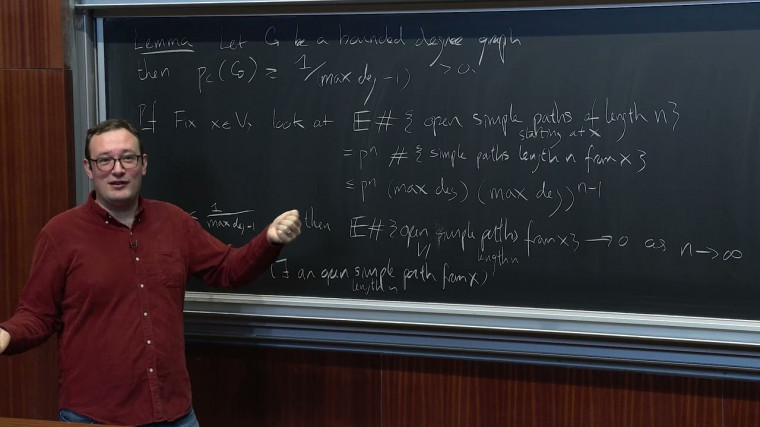 Lemma Let G be a bounded degree graph
then p_c(G) ≥ 1/(max deg -1) > 0.
Pf Fix x∈V, look at 𝔼 # { open simple paths of length n }
starting at x
= pⁿ # { simple paths length n from x }
≤ pⁿ (max deg) (max deg)ⁿ⁻¹
1/(max deg -1) then 𝔼 # { open simple paths from x } → 0 as n → ∞
length n
(∃ an open simple path from x)
length n